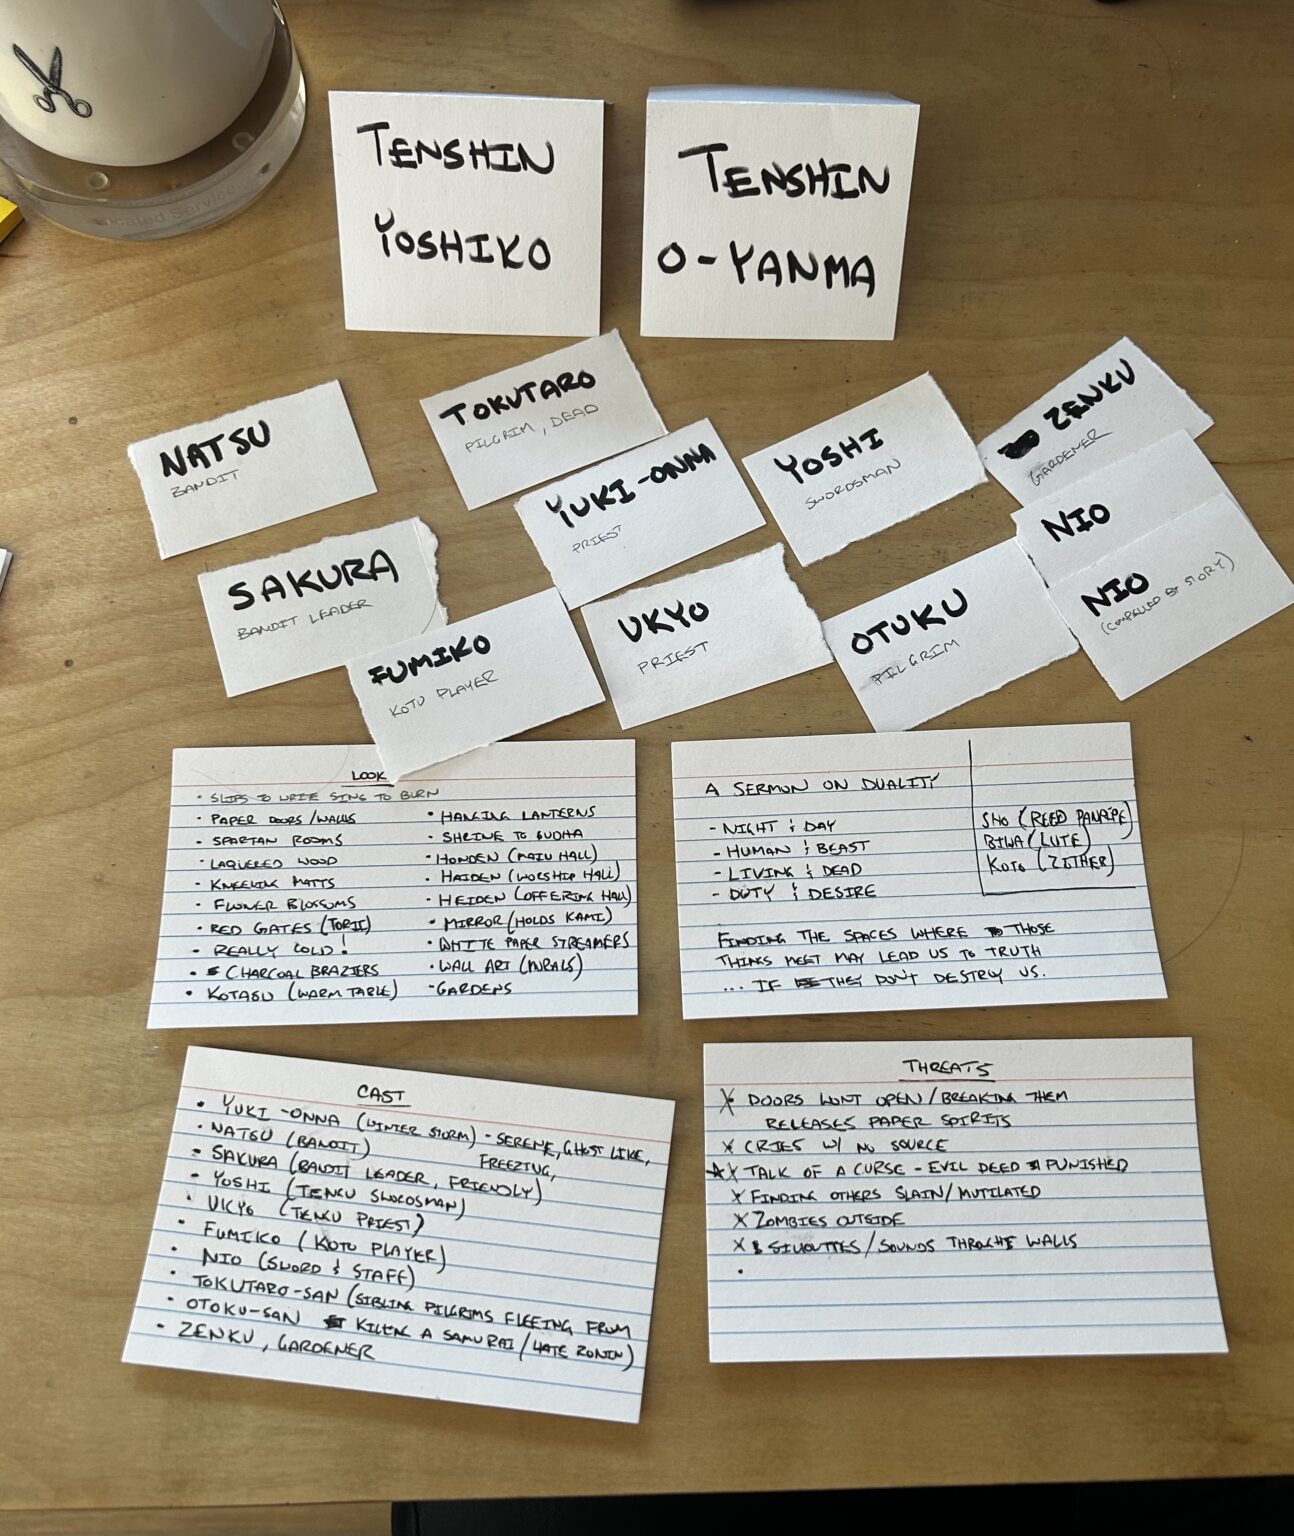 TENSHIN
YOSHIKO
TENSHIN
O-YANMA
NATSU
BANDIT
TOKUTARO
PILGRIM, DEAD
YUKI-ONNA
PRIEST
YOSHI
SWORDSMAN
ZENKU
GARDENER
SAKURA
BANDIT LEADER
FUMIKO
KOTO PLAYER
UKYO
PRIEST
OTUKU
PILGRIM
NIO
NIO
(COMPELLED BY STORY)
LOOK
• SLIPS TO WRITE SINS TO BURN
• PAPER DOORS/WALLS
• SPARTAN ROOMS
• LAQUERED WOOD
• KNEELING MATTS
• FLOWER BLOSSOMS
• RED GATES (TORII)
• REALLY COLD!
• CHARCOAL BRAZIERS
• KOTASU (WARM TABLE)
• HANGING LANTERNS
• SHRINE TO BUDHA
• HONDEN (MAIN HALL)
• HAIDEN (WORSHIP HALL)
• HEIDEN (OFFERING HALL)
• MIRROR (HOLDS KAMI)
• WHITE PAPER STREAMERS
• WALL ART (MURALS)
- GARDENS
A SERMON ON DUALITY
- NIGHT & DAY
- HUMAN & BEAST
- LIVING & DEAD
- DUTY & DESIRE
SHO (REED PANPIPE)
BIWA (LUTE)
KOTO (ZITHER)
FINDING THE SPACES WHERE THOSE
THINGS MEET MAY LEAD US TO TRUTH
... IF THEY DON'T DESTROY US.
CAST
• YUKI-ONNA (WINTER STORM) - SERENE, GHOST LIKE,
FREEZING,
• NATSU (BANDIT)
• SAKURA (BANDIT LEADER, FRIENDLY)
• YOSHI (TENKU SWORDSMAN)
• UKYO (TENKU PRIEST)
• FUMIKO (KOTO PLAYER)
• NIO (SWORD & STAFF)
• TOKUTARO-SAN (SIBLING PILGRIMS FLEEING FROM
• OTOKU-SAN KILLING A SAMURAI/HATE RONIN)
• ZENKU, GARDENER
THREATS
X DOORS WONT OPEN/BREAKING THEM
RELEASES PAPER SPIRITS
X CRIES W/ NO SOURCE
X TALK OF A CURSE - EVIL DEED PUNISHED
X FINDING OTHERS SLAIN/MUTILATED
X ZOMBIES OUTSIDE
X SILHOUTTES/SOUNDS THROUGH WALLS